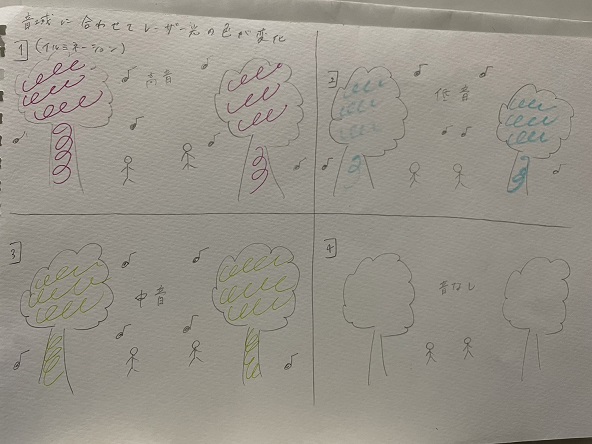 音域に合わせてレーザー光の色が変化
1 (イルミネーション)
高音
2
低音
3
中音
4
音なし